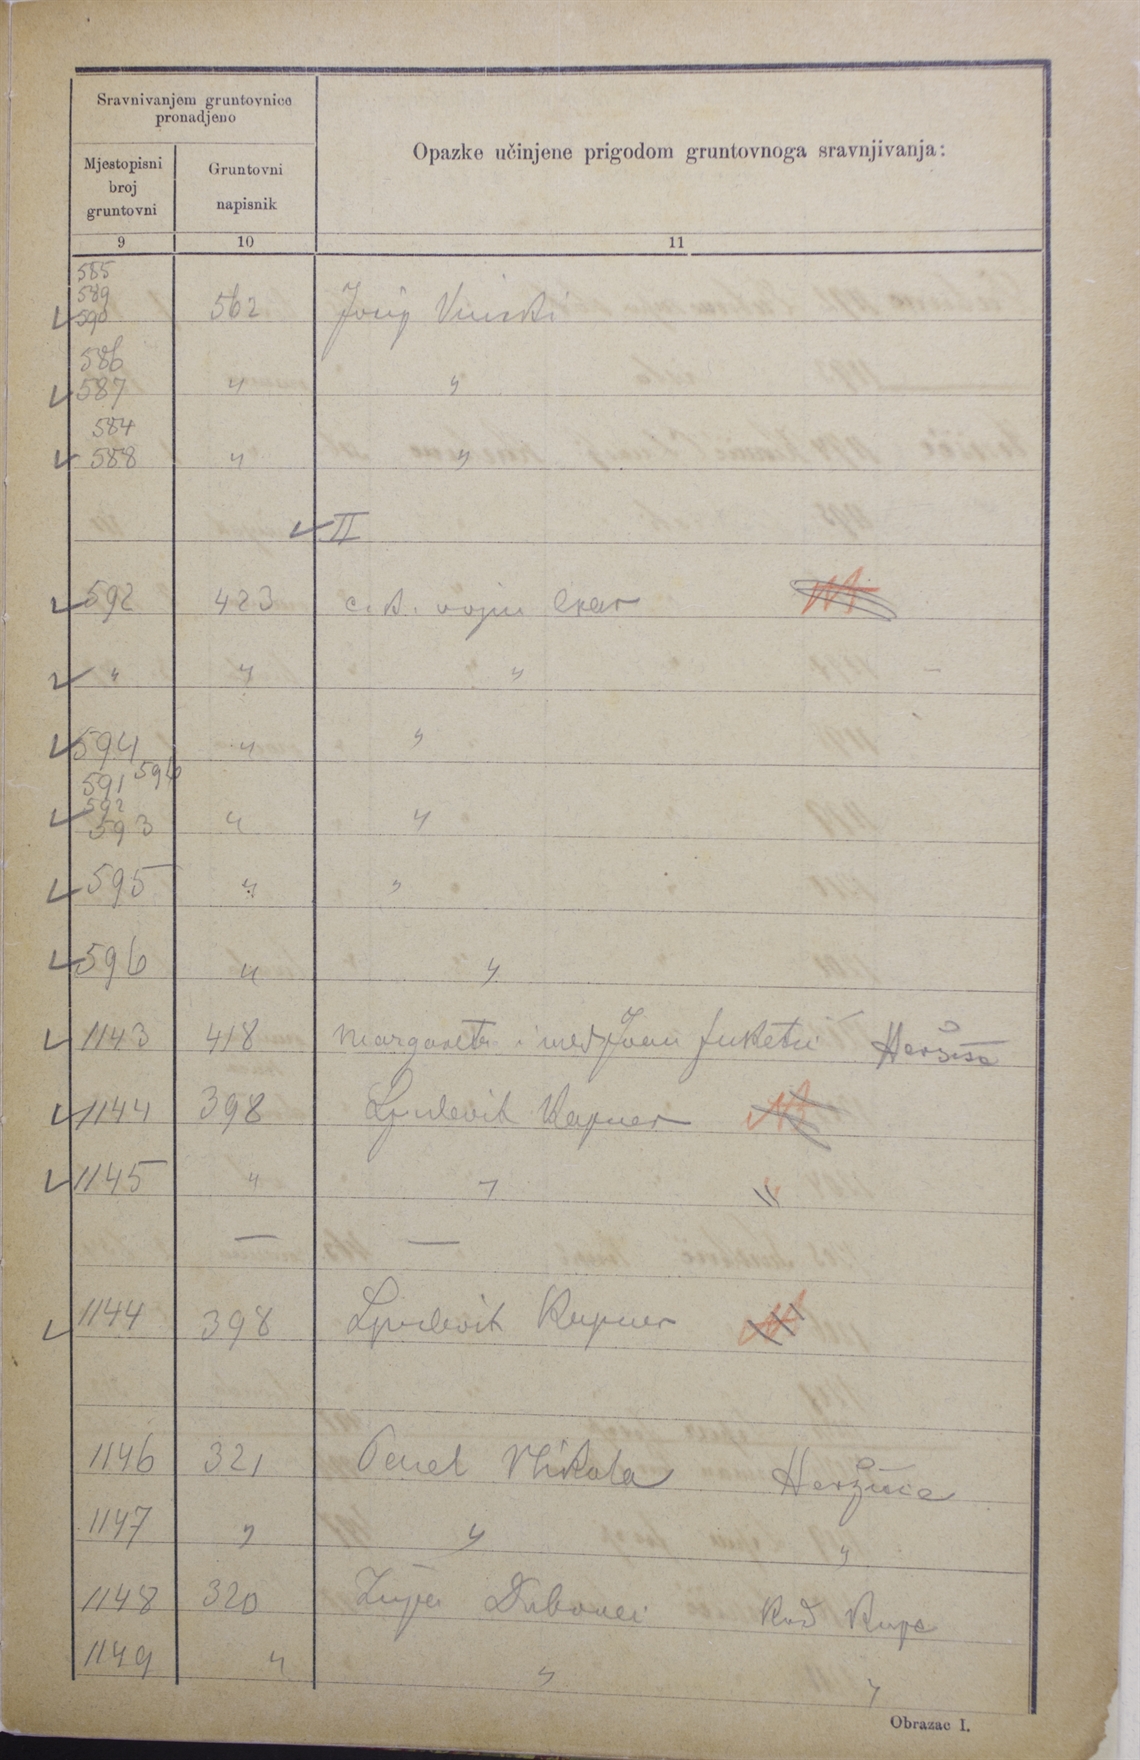 Sravnivanjem gruntovnice
pronadjeno
Mjestopisni
broj
gruntovni
Gruntovni
napisnik
Opazke učinjene prigodom gruntovnoga sravnjivanja:
9 10 11
585
589
590 562 Josip
586
587 " "
584
588 " "
II
592 423 c. k. vojni erar
" " "
594 " "
591 596
592
593 " "
595 " "
596 " "
1143 418 Margareta i
1144 398 Ljudevit
1145 " " "
— —
1144 398 Ljudevit
1146 321 Pavel Mikola
1147 " " "
1148 320 Župa Dubovci kod
1149 " " "
Obrazac I.